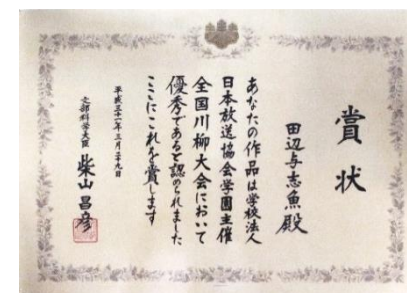 賞状
田辺与志魚殿
あなたの作品は学校法人
日本放送協会学園主催
全国川柳大会において
優秀であると認められました
ここにこれを賞します
平成三十一年三月二十九日
文部科学大臣 柴山昌彦